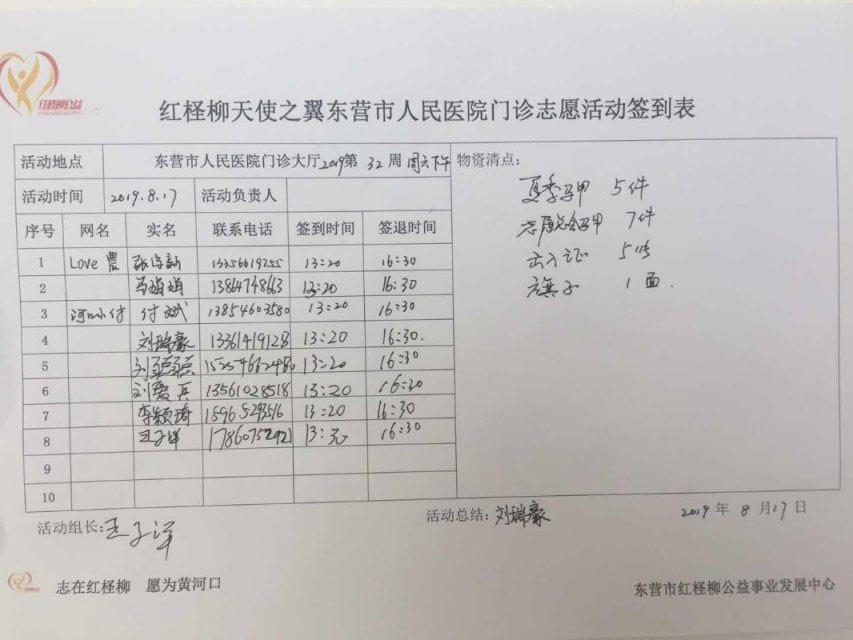 红柽柳公益
红柽柳天使之翼东营市人民医院门诊志愿活动签到表
活动地点 东营市人民医院门诊大厅2019第 32 周 周六下午 物资清点：
活动时间 2019.8.17 活动负责人
夏季马甲 5件
序号 网名 实名 联系电话 签到时间 签退时间
马甲 7件
1 Love 13356619255 13:20 16:30
出入证 5
2 13864748663 13:20 16:30
旗子 1面.
3 河口小付 付斌 13854603580 13:20 16:30
4 刘瑞豪 13361419128 13:20 16:30.
5 13:20 16:30
6 刘爱兵 13561028518 13:20 16:30
7 李颖琦 13:20 16:30
8 王子洋 17860752921 13:20 16:30
9
10
活动组长：王子洋 活动总结：刘瑞豪 2019 年 8 月17 日
志在红柽柳 愿为黄河口 东营市红柽柳公益事业发展中心